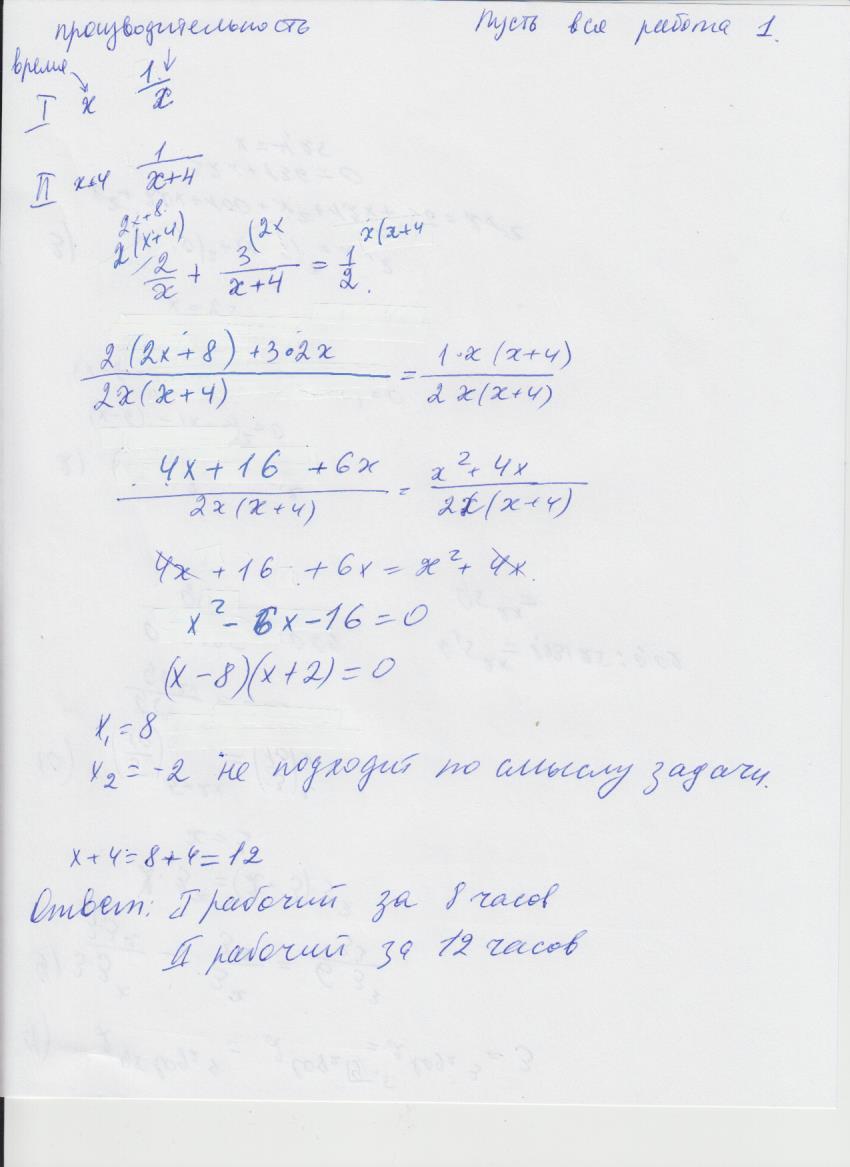 производительность Пусть вся работа 1.
время
I x 1/x
II x+4 1/(x+4)
2x+8
2(x+4) (2x x(x+4
2/x + 3/(x+4) = 1/2.
(2(2x+8)+3·2x)/(2x(x+4)) = (1·x(x+4))/(2x(x+4))
(4x+16+6x)/(2x(x+4)) = (x²+4x)/(2x(x+4))
4x+16+6x=x²+4x.
x²-6x-16=0
(x-8)(x+2)=0
x₁=8
x₂=-2 не подходит по смыслу задачи.
x+4=8+4=12
Ответ: I рабочий за 8 часов
II рабочий за 12 часов